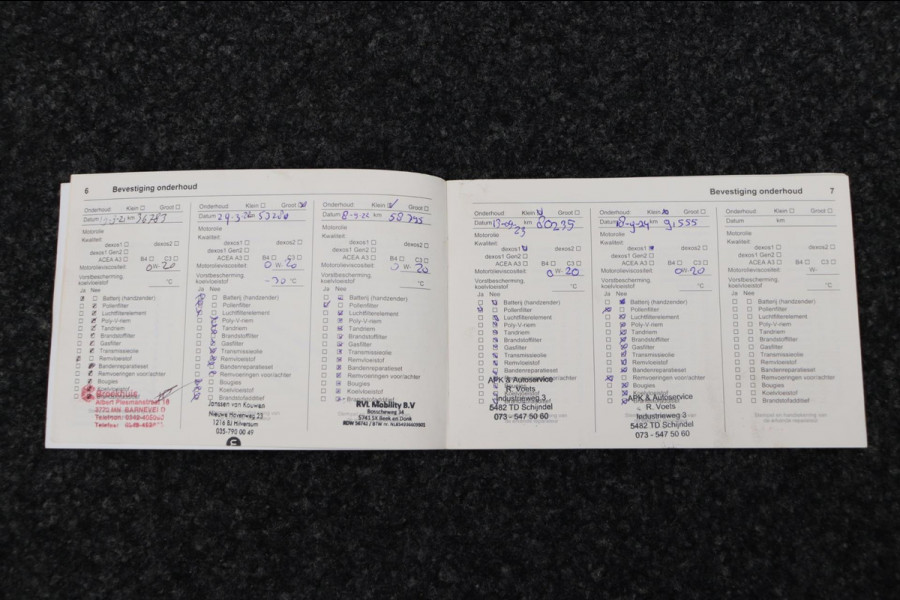 6 Bevestiging onderhoud
Onderhoud: Klein Groot
Datum km 36783
Motorolie
Kwaliteit:
dexos1 dexos2
dexos1 Gen2
ACEA A3 B4 C3
Motorolieviscositeit 0W-20
Vorstbescherming, koelvloeistof °C
Ja Nee
Batterij (handzender)
Pollenfilter
Luchtfilterelement
Poly-V-riem
Tandriem
Brandstoffilter
Gasfilter
Transmissieolie
Remvloeistof
Bandenreparatieset
Remvoeringen voor/achter
Bougies
Koelvloeistof
Albert Plesmanstraat 18
3772 MN BARNEVELD
Onderhoud: Klein Groot
Datum km
Motorolie
Kwaliteit:
dexos1 dexos2
dexos1 Gen2
ACEA A3 B4 C3
Motorolieviscositeit 0W-20
Vorstbescherming, koelvloeistof -30 °C
Ja Nee
Batterij (handzender)
Pollenfilter
Luchtfilterelement
Poly-V-riem
Tandriem
Brandstoffilter
Gasfilter
Transmissieolie
Remvloeistof
Bandenreparatieset
Remvoeringen voor/achter
Bougies
Koelvloeistof
Brandstofadditief
Janssen van Kouwen
Nieuwe Havenweg 22
1216 BJ Hilversum
035-790 00 49
Onderhoud: Klein Groot
Datum km
Motorolie
Kwaliteit:
dexos1 dexos2
dexos1 Gen2
ACEA A3 B4 C3
Motorolieviscositeit 0W-20
Vorstbescherming, koelvloeistof °C
Ja Nee
Batterij (handzender)
Pollenfilter
Luchtfilterelement
Poly-V-riem
Tandriem
Brandstoffilter
Gasfilter
Transmissieolie
Remvloeistof
Bandenreparatieset
Remvoeringen voor/achter
Bougies
Koelvloeistof
Brandstofadditief
RVL Mobility B.V
Bevestiging onderhoud 7
Onderhoud: Klein Groot
Datum 13-04-23 km 80235
Motorolie
Kwaliteit:
dexos1 dexos2
dexos1 Gen2
ACEA A3 B4 C3
Motorolieviscositeit 0W-20
Vorstbescherming, koelvloeistof °C
Ja Nee
Batterij (handzender)
Pollenfilter
Luchtfilterelement
Poly-V-riem
Tandriem
Brandstoffilter
Gasfilter
Transmissieolie
Remvloeistof
Bandenreparatieset
Remvoeringen voor/achter
APK & Autoservice
R. Voets
Industrieweg 3
5482 TD Schijndel
073 - 547 50 60
Onderhoud: Klein Groot
Datum 18-4-24 km 91555
Motorolie
Kwaliteit:
dexos1 dexos2
dexos1 Gen2
ACEA A3 B4 C3
Motorolieviscositeit 0W-20
Vorstbescherming, koelvloeistof °C
Ja Nee
Batterij (handzender)
Pollenfilter
Luchtfilterelement
Poly-V-riem
Tandriem
Brandstoffilter
Gasfilter
Transmissieolie
Remvloeistof
Bandenreparatieset
Remvoeringen voor/achter
Bougies
Koelvloeistof
APK & Autoservice
R. Voets
Industrieweg 3
5482 TD Schijndel
073 - 547 50 60
Onderhoud: Klein Groot
Datum km
Motorolie
Kwaliteit:
dexos1 dexos2
dexos1 Gen2
ACEA A3 B4 C3
Motorolieviscositeit W-
Vorstbescherming, koelvloeistof °C
Ja Nee
Batterij (handzender)
Pollenfilter
Luchtfilterelement
Poly-V-riem
Tandriem
Brandstoffilter
Gasfilter
Transmissieolie
Remvloeistof
Bandenreparatieset
Remvoeringen voor/achter
Bougies
Koelvloeistof
Brandstofadditief